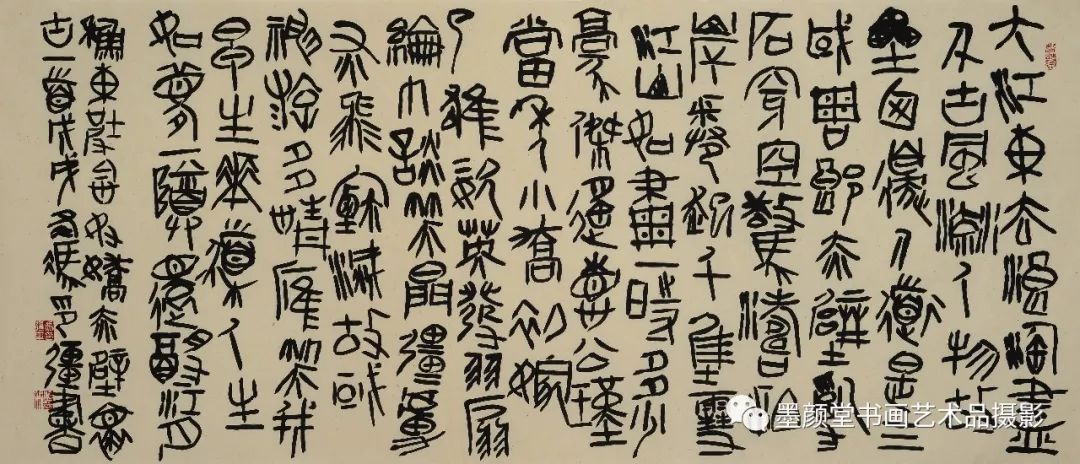 大江東去浪淘盡
千古風流人物故
壘西邊人道是三
國周郎赤壁亂
石穿空驚濤拍
岸卷起千堆雪
江山如畫一時多少
豪傑遙想公瑾
當年小喬初嫁
了雄姿英發羽扇
綸巾談笑間彊虜
灰飛煙滅故國
神遊多情應笑我
早生華髮人生
如夢一尊還酹江月
東坡念奴嬌赤壁懷
古一首戊戌彊書
墨颜堂书画艺术品摄影